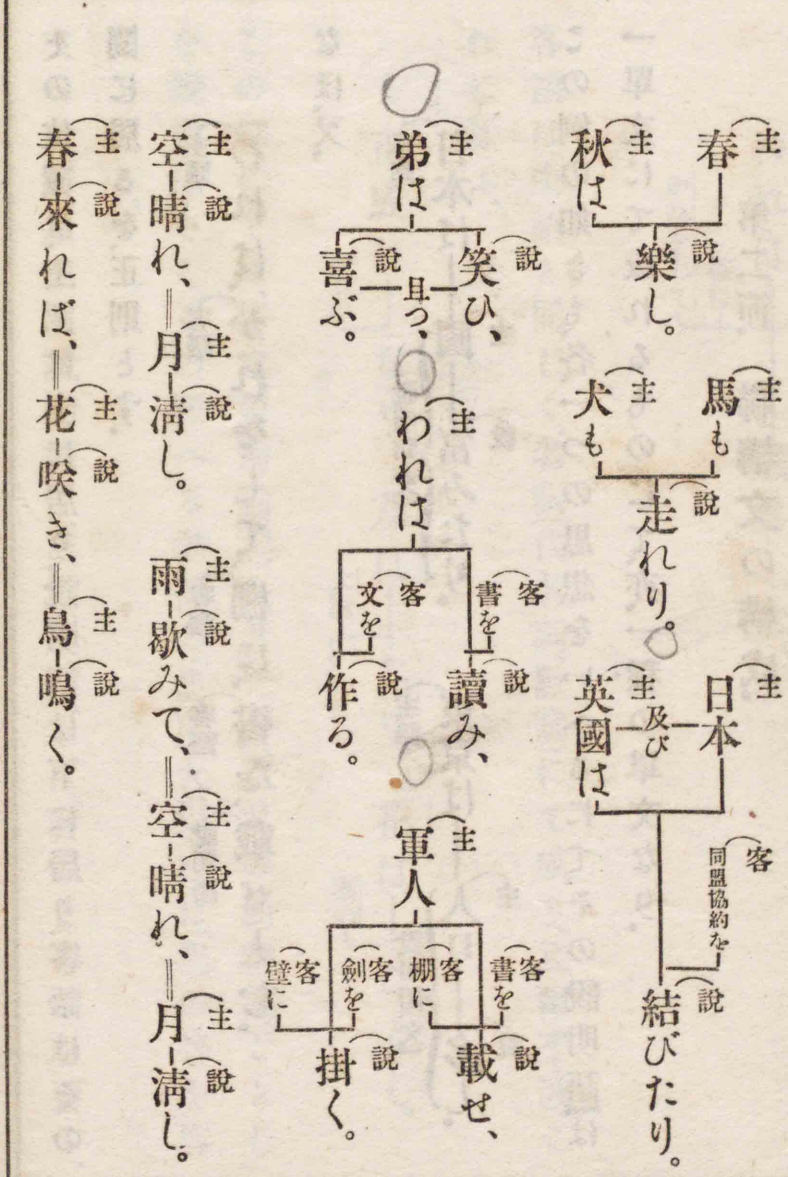 (主 春
(主 秋は
(說 樂し。
(主 馬も
(主 犬も
(說 走れり。
(主 日本
及び
(主 英國は
(客 同盟協約を
(說 結びたり。
(主 弟は
(說 笑ひ、
且つ、
(說 喜ぶ。
(主 われは
(客 書を
(說 讀み、
(客 文を
(說 作る。
(主 軍人
(客 書を
(客 棚に
(說 載せ、
(客 劍を
(客 壁に
(說 掛く。
(主 空 (說 晴れ、 (主 月 (說 淸し。
(主 雨 (說 歇みて、 (主 空 (說 晴れ、 (主 月 (說 淸し。
(主 春 (說 來れば、 (主 花 (說 咲き、 (主 鳥 (說 鳴く。